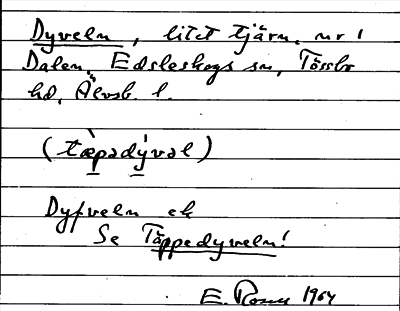 Dyveln, litet tjärn. nr 1
Dalen, Edsleskogs sn, Tössbo
hd, Älvsb. l.
(tæ̀pədývəl)
Dyfveln ek
Se Täppedyveln!
E. Rosen 1964